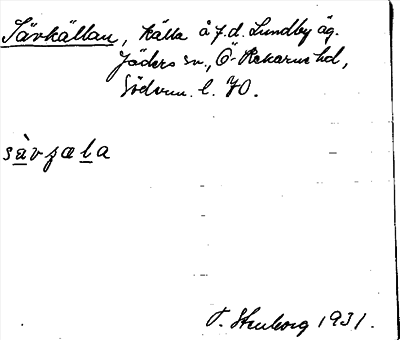 Sävkällan, källa å f.d. Lundby äg.
Jäders sn., Ö-Rekarne hd,
Södvm. l. 70.
sàvʒæla
T. Stenborg 1931.